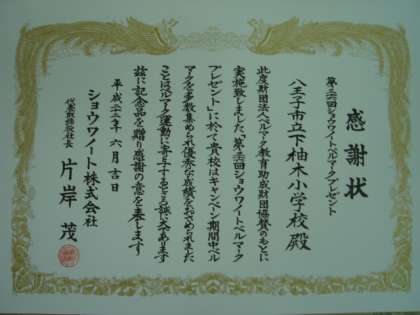 感謝状
第二六回ショウワノートベルマークプレゼント
八王子市立下柚木小学校殿
此度財団法人ベルマーク教育助成財団協賛のもとに
実施致しました「第二六回ショウワノートベルマーク
プレゼント」に於て貴校はキャンペーン期間中ベル
マークを多数集められ優秀な成績をおさめられました
ことはベルマーク運動に寄与するところ誠に大であります
茲に記念品を贈り感謝の意を表します
平成二十二年六月吉日
ショウワノート株式会社
代表取締役社長 片岸茂